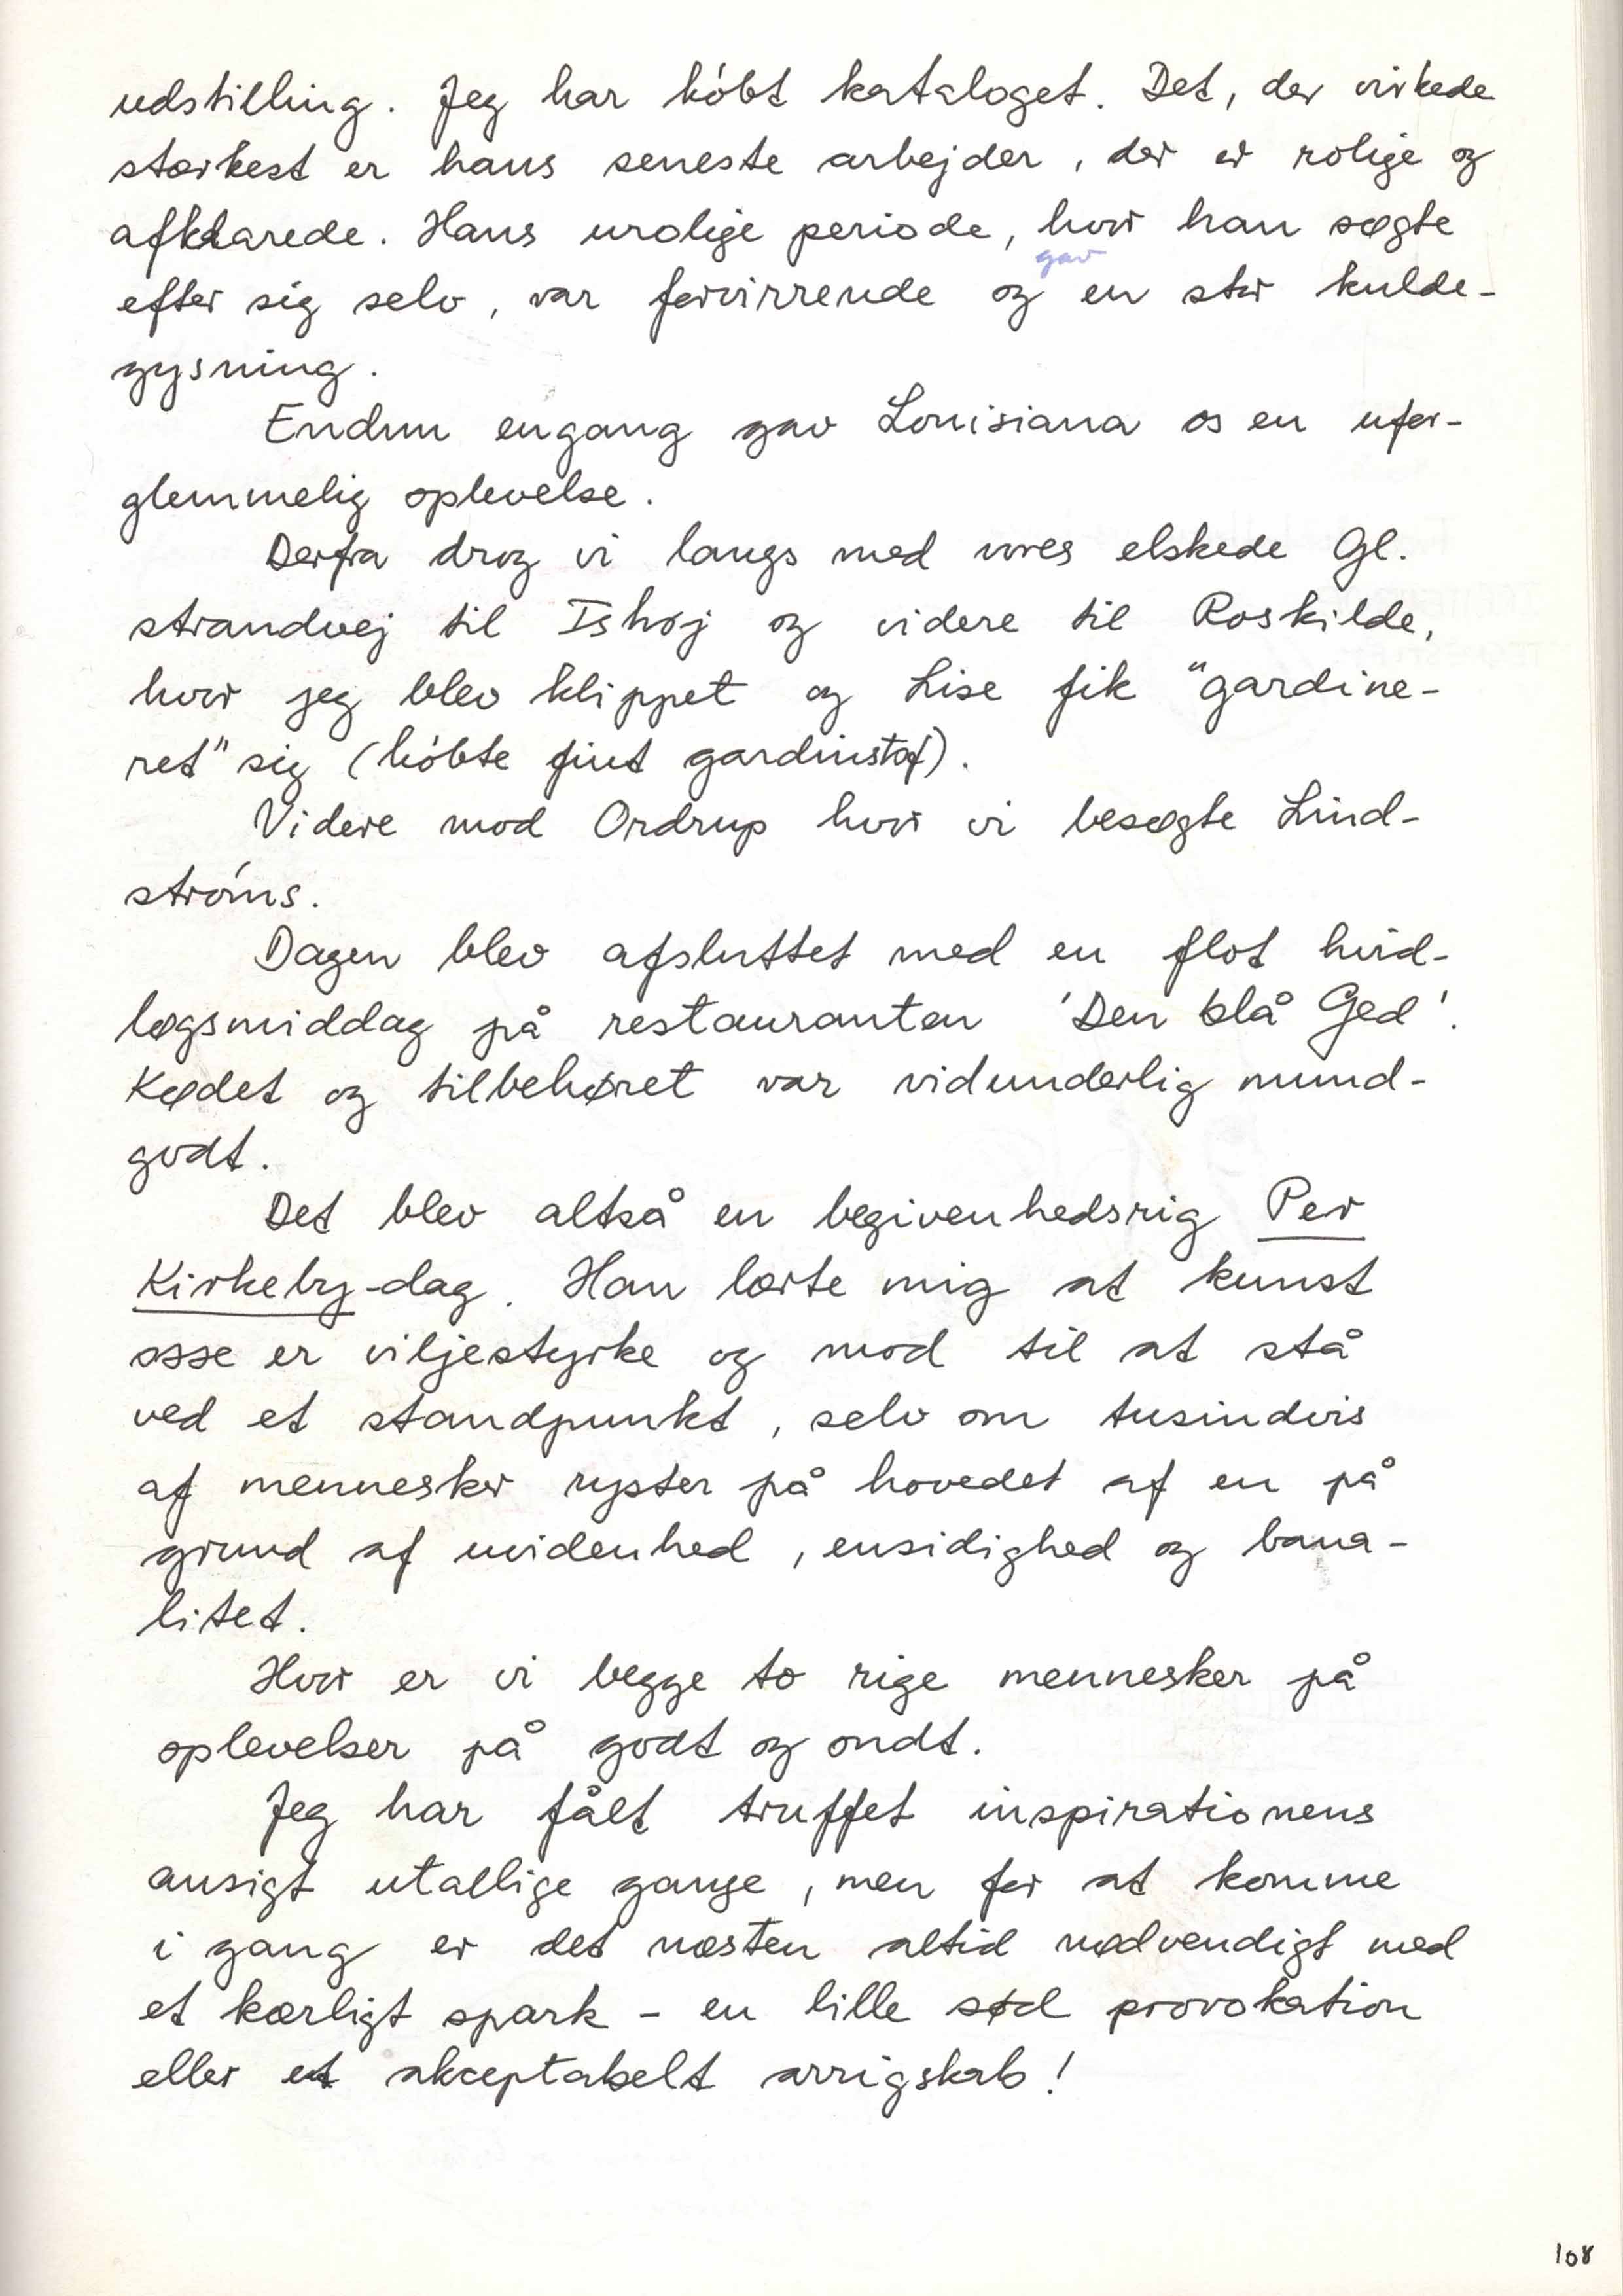 udstilling. Jeg har kóbt kataloget. Det, der virkede
stærkest er hans seneste arbejder, der er rolige og
afklarede. Hans urolige periode, hvor han søgte
efter sig selv, var forvirrende og gav en stor kulde-
gysning.
Endnu engang gav Louisiana os en ufor-
glemmelig oplevelse.
Derfra drog vi langs med vores elskede Gl.
strandvej til Ishøj og videre til Roskilde,
hvor jeg blev klippet og Lise fik "gardine-
ret" sig (kóbte fint gardinstof).
Videre mod Ordrup hvor vi besøgte Lind-
stróms.
Dagen blev afsluttet med en flot hvid-
løgsmiddag på restauranten 'Den blå Ged'.
Kødet og tilbehøret var vidunderlig mund-
godt.
Det blev altså en begivenhedsrig Per
Kirkeby-dag. Han lærte mig at kunst
osse er viljestyrke og mod til at stå
ved et standpunkt, selv om tusindvis
af mennesker ryster på hovedet af en på
grund af uvidenhed, ensidighed og bana-
litet.
Hvor er vi begge to rige mennesker på
oplevelser på godt og ondt.
Jeg har fået truffet inspirationens
ansigt utallige gange, men for at komme
i gang er det næsten altid nødvendigt med
et kærligt spark - en lille sød provokation
eller et akceptabelt arrigskab!
108